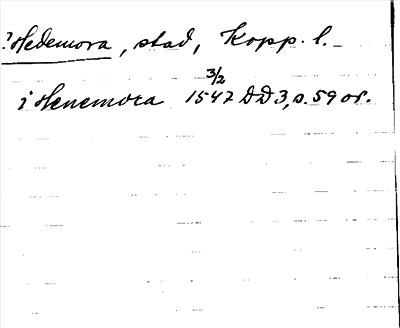 ?Hedemora, stad, Kopp. l.
i Henemora 1547 3/2 DD3, s. 59 or.